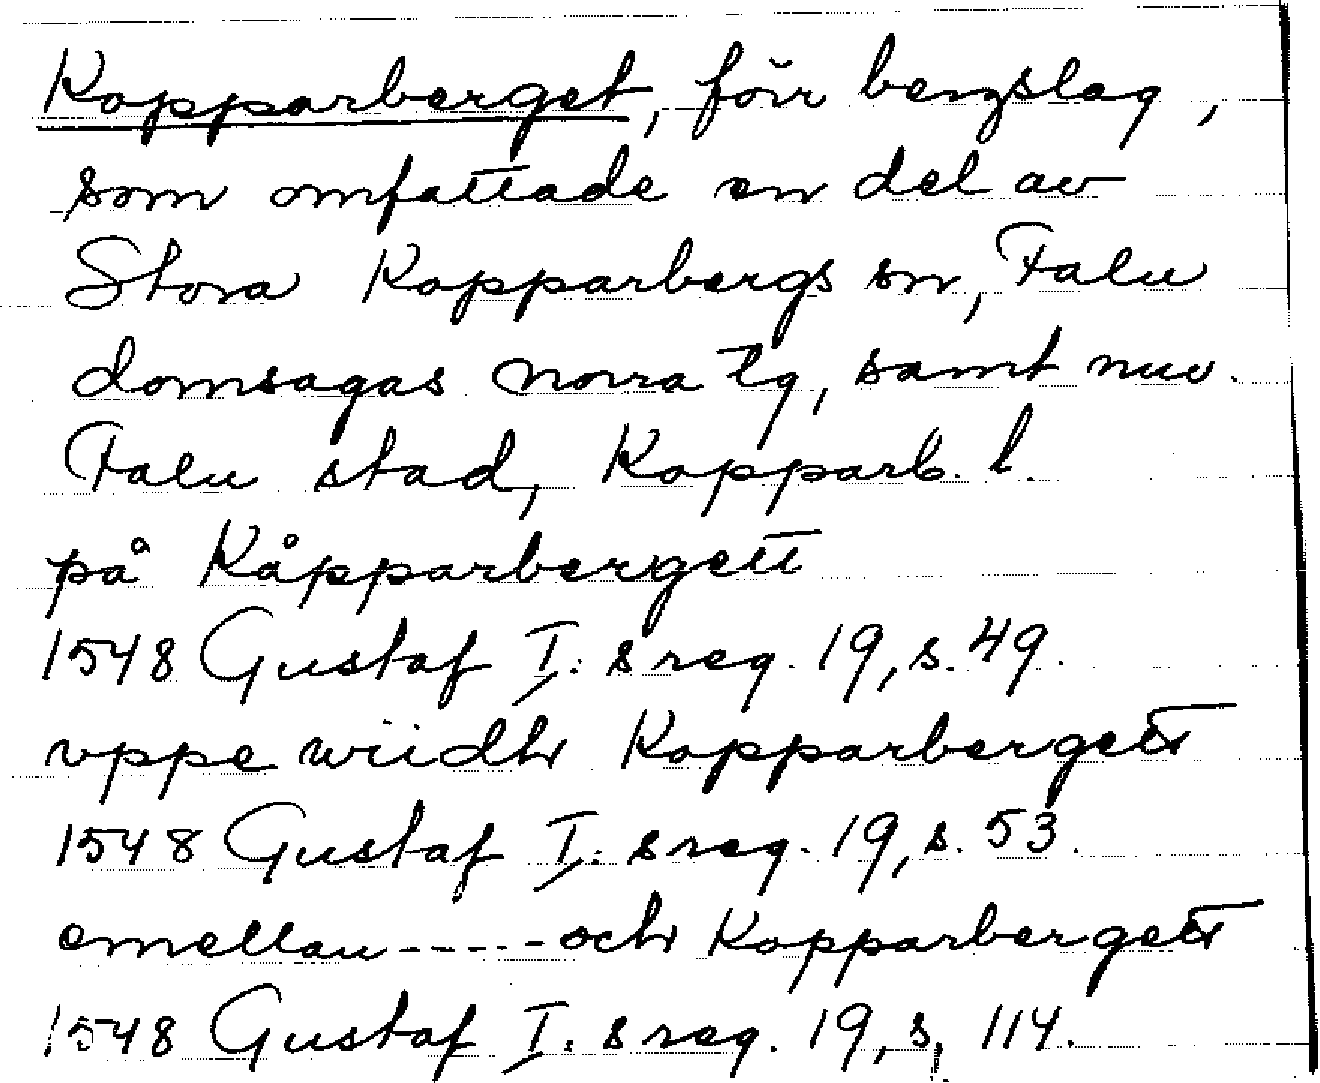 Kopparberget, förr bergslag,
som omfattade en del av
Stora Kopparbergs sn, Falu
domsagas norra tg, samt nuv.
Falu stad, Kopparb. l.
på Kåpparbergett
1548 Gustaf I:s reg. 19, s. 49.
vppe wiidh Kopparbergett
1548 Gustaf I:s reg. 19, s. 53.
emellan ----- och Kopparbergett
1548 Gustaf I:s reg. 19, s. 114.